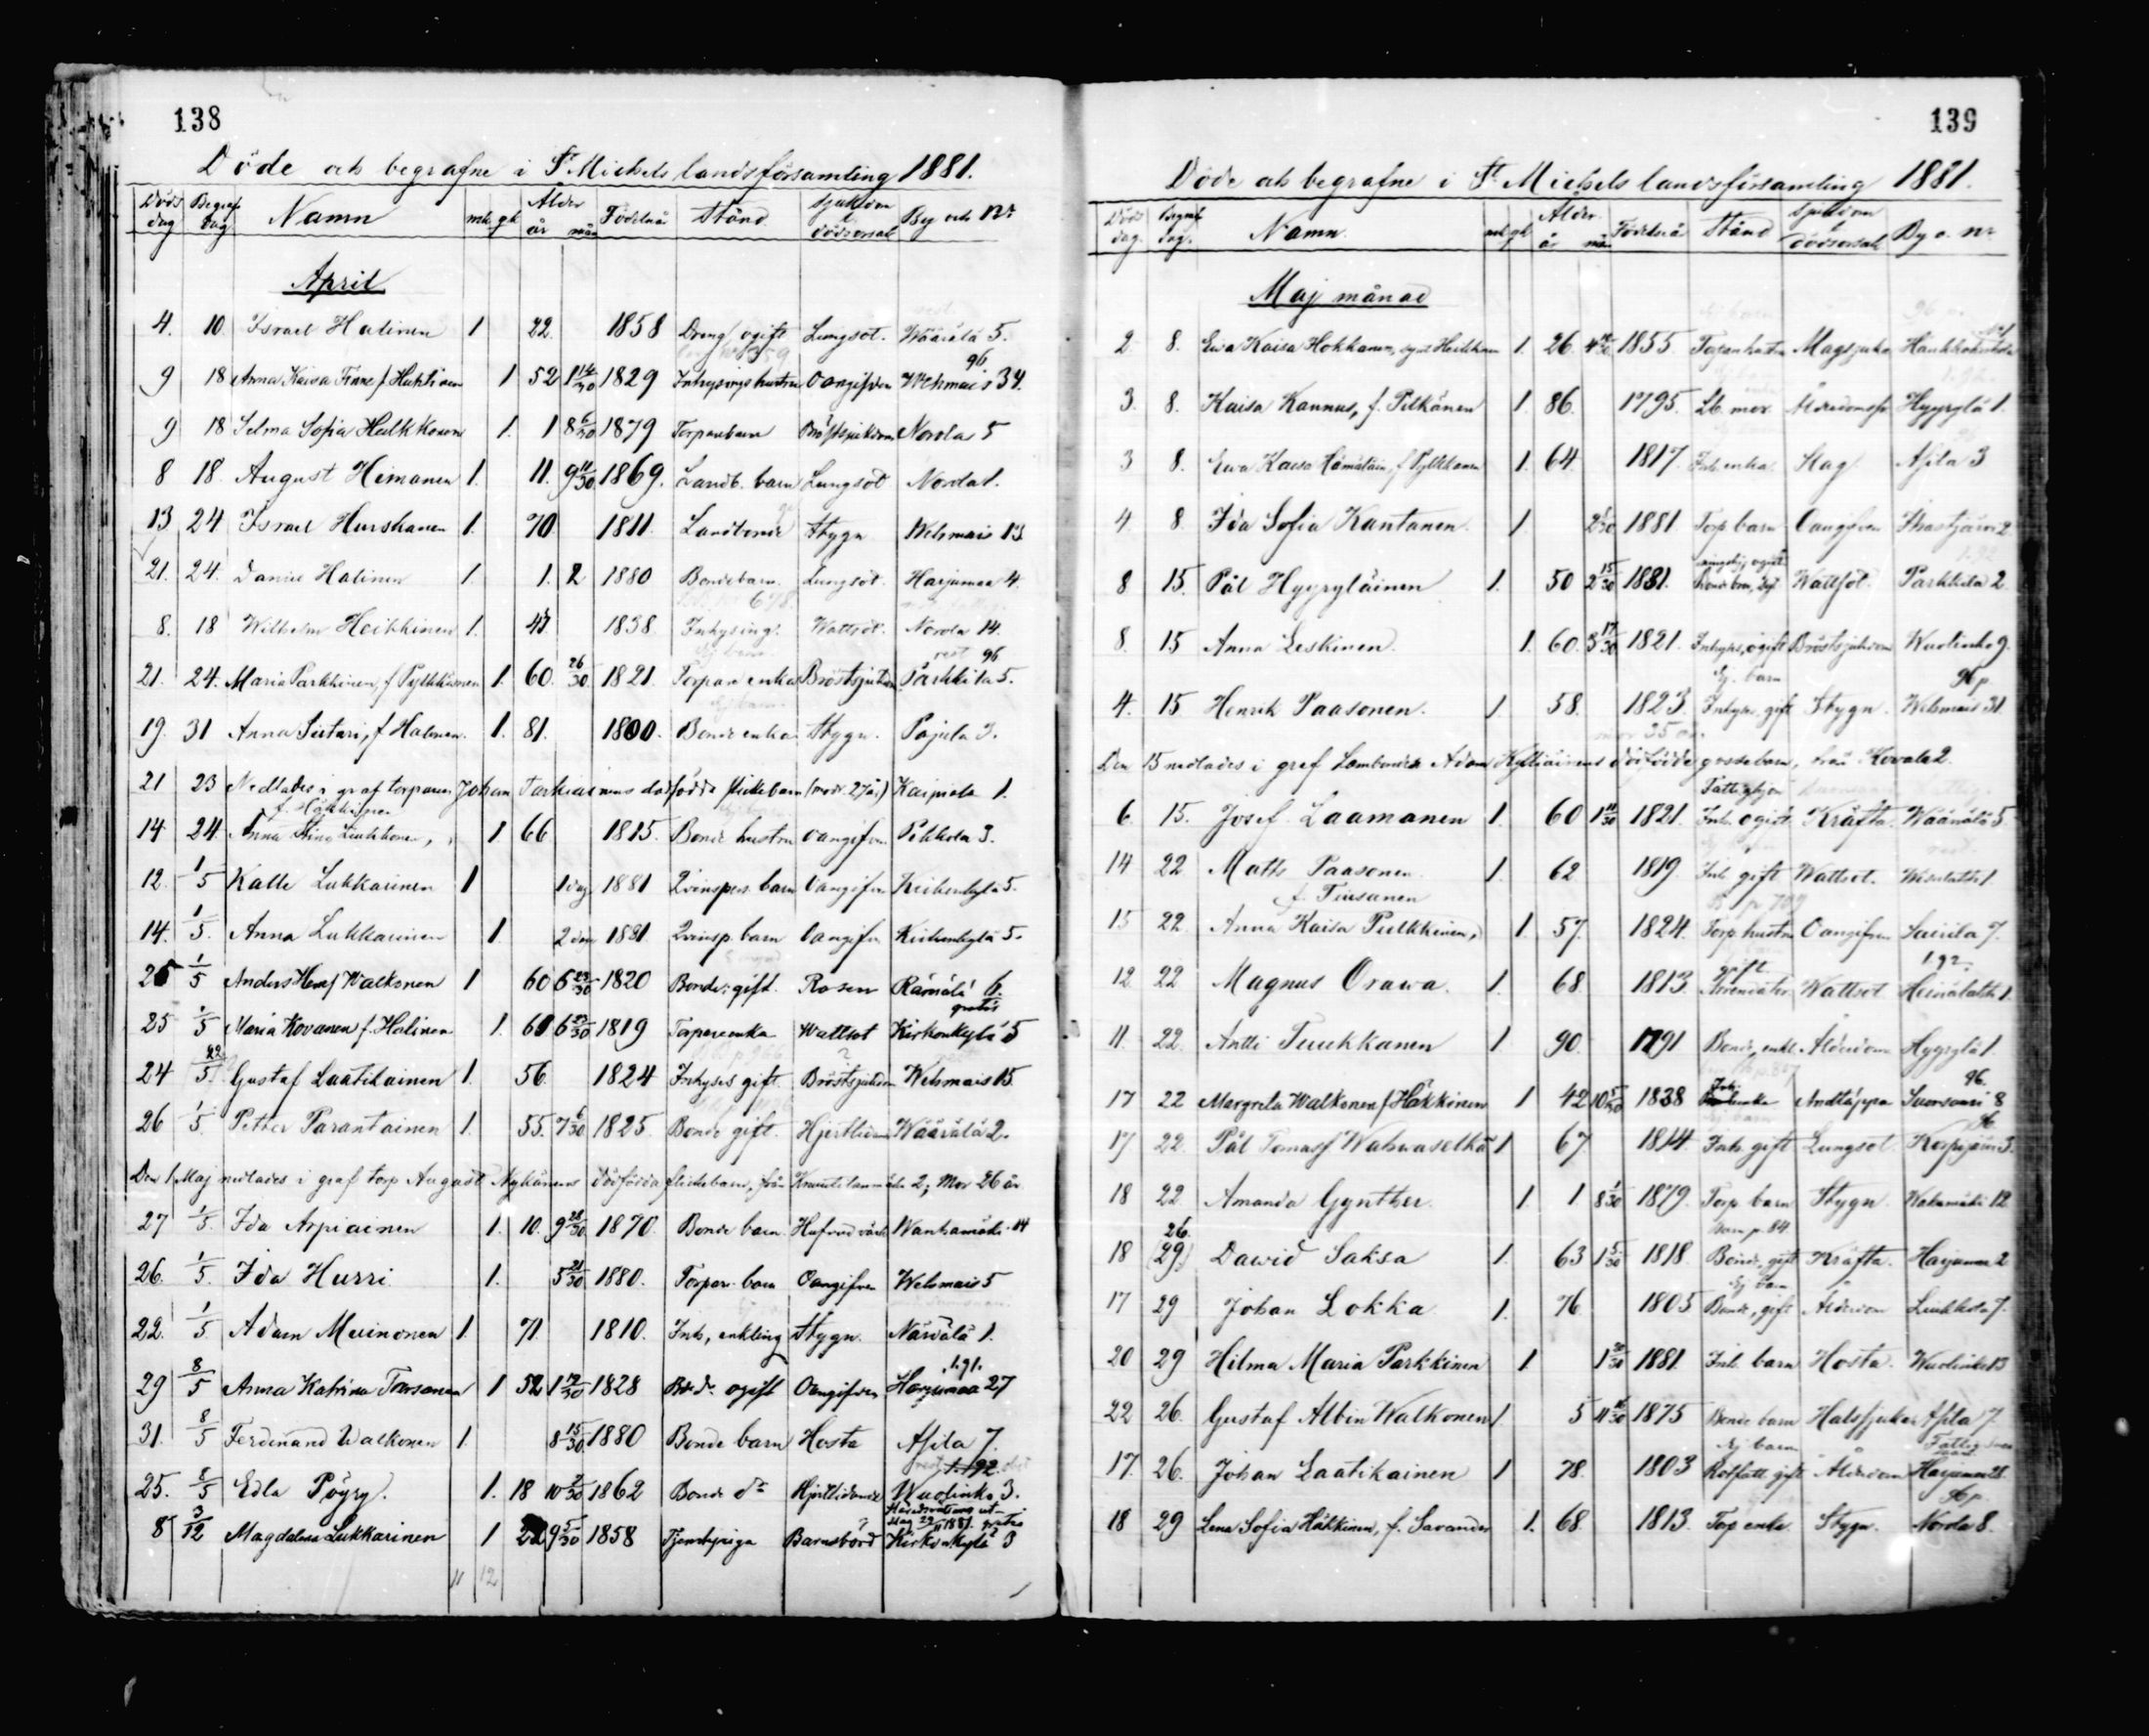 138
Döde och begrafne i St Michels landsförsamling 1881.
Döds dag Begraf dag Namn mk qk Ålder år mån Födelseå Stånd Sjukdom & dödsorsak By och No
April
4. 10 Israel Halinen 1 22 1858 Dreng ogift Lungsot. Wäärälä 5.
96
9 18 Anna Kaisa 1 52 1 14/30 1829 Inhysings hustru Oangifven Wehmais 34.
9 18 Selma Sofia Heikkonen 1. 1 8 6/30 1879 Torparebarn Bröstsjukdom Norola 5
8 18 August Heimanen 1. 11. 9 11/30 1869. Landb. barn Lungsot Norola 1.
13 24 Israel Hurskanen 1. 70 1811. Landbonde Stygn Wehmais 13
21. 24. Daniel Halinen 1. 1. 2 1880 Bondebarn Lungsot. Harjumaa 4.
8. 18 Wilhelm Heikkinen 1. 1838 Inhysing. Wattsot. Norola 14.
96
21. 24. Maria Parkkinen, f Pylkkänen 1. 60. 26/30 1821. Torpare enka Bröstsjukdom Parkkila 5.
19. 31 Anna Sutari, f Halonen. 1. 81. 1800. Bonde enka Stygn. Pajula 3.
21 23 Nedlades i graf torparen Johan Tarkiainens dödfödda flickebarn (modr. 27 år) Kaipiala 1.
14 24. Anna Stina Liukkonen, 1 66 1815. Bonde hustru oangifven Pekkola 3.
12. 1/5 Kalle Lukkarinen 1 1 dag 1881 Qvinspers. barn Oangifven Kirkonkylä 5.
14. 1/5. Anna Lukkarinen 1. 1881. Qvinsp. barn Oangifven Kirkonkylä 5.
25 1/5 Anders Henr Walkonen 1 60 6 23/30 1820 Bonde. gift. Rosen Rämälä 6.
gratis
25 1/5 Maria Kovanen f. Halinen 1. 61 6 23/30 1819 Torpareenka Wattsot Kirkonkylä 5
24 22/5. Gustaf Laatikainen 1. 56. 1824 Inhyses gift. Bröstsjukdom Wehmais 15.
26 1/5. Petter Parantainen 1. 55. 7 6/30 1825. Bonde gift. Hjertlidande Wäärälä 2.
Den 1 Maj nedlades i graf torp August Nykänens dödfödda flickebarn, från 2; Mor 26 år
27 1/5. Ida Arpiainen 1. 10. 9 28/30 1870. Bonde barn Hufvud värk Wanhamäki 14
26. 1/5. Ida Hurri 1. 5 21/30 1880. Torpar. barn Oangifven Wehmais 5
22. 1/5. Adam Muinonen 1. 71. 1810. Inh, enkling Stygn. Närvälä 1.
1.91.
29 8/5 Anna Katrina 1 52 1 12/30 1828 Bde dr ogift Oangifven Harjumaa 27
31. 8/5 Ferdinand Walkonen 1. 8 15/30 1880 Bonde barn Hosta Asila 7.
1.92.
25. 8/5 Edla Pöyry. 1. 18 10 2/30 1862 Bonde dr Hjertlidande Wuolinko 3.
Häradsrättens ut-
1881. gratis
8 3/12 Magdalena Lukkarinen 1 22 9 5/30 1858 Tjenstepiga Barnsbörd Kirkonkylä 3
11 12
139
Döde och begrafne i St Michels landsförsamling 1881.
Döds dag. Begraf dag. Namn mk qk Ålder. år mån Födelseå Stånd Sjukdom & dödsorsak By o. No
Maj månad
2 8. Ewa Kaisa Hokkanen, 1. 26. 1855. Torparhustru Magsjuka
3. 8. Kaisa Kannus, f. Pitkänen 1. 86. 1795. Lb. mor. Ålderdomsv Hyyrylä 1.
3 8. Ewa Kaisa Hämäläin, f Pylkkänen 1. 64. 1817. Inh enka. Slag Asila 3
4 8. Ida Sofia Kantanen. 1 2 1/30 1881 Torp barn Oangifven 2
8 15. Pål Hyyryläinen 1. 50 2 15/30 1881. Wattsot. Parkkila 2
8. 15 Anna Leskinen. 1. 60. 3 17/30 1821. Inhyses, ogift Bröstsjukdom Wuolinko 9.
Ej. barn 96 p.
4. 15 Henrik Paasonen. 1. 58. 1823. Inhys. gift Stygn. Wehmais 31
Den 15 nedlades i graf Landbonde Adam Hyttiäinens dödfödde gossebarn, från Korala 2.
Fattighjon
6. 15. Josef Laamanen 1. 60 1 11/30 1821. Inh. ogift Kräfta. Wäärälä 5
14 22 Matts Paasonen. 1. 62 1819. Inh. gift Wattsot. 1.
f. Tiusanen
15 22 Anna Kaisa Pulkkinen, 1. 57. 1824. Torp hustru Oangifven Sairila 7.
gift 1.92.
12 22 Magnus Orawa. 1. 68 1813 Arrendator Wattsot 1.
11. 22. Antti Tuukkanen 1. 90. 1791 Bonde, enkl. Ålderdom Hyyrylä 1.
96.
17 22 Margreta Walkonen f Häkkinen 1 42 10 5/30 1838 Andtäppa Suonsaari 8
96
17 22 Pål Tomasf Wahwaselkä 1 67. 1814. Inh. gift Lungsot 3.
18 22 Amanda Gynther. 1. 1 8 1/30 1879. Torp. barn Stygn. 12
26. barn p. 84
18 (29) Dawid Saksa 1. 63 1 5/30 1818. Bonde, gift Kräfta. Harjumaa 2
Ej barn
17 29 Johan Lokka 1. 76 1805 Bonde, gift Ålderdom Liukkola 7.
20 29 Hilma Maria Parkkinen 1. 1881. Inh. barn Hosta. Wuolinko 13
22 26. Gustaf Albin Walkonen 1. 5 1875 Bonde barn Halssjuka Asila 7.
Ej barn
17. 26. Johan Laatikainen 1 78. 1803 gift Ålderdom Harjumaa 28.
96 p.
18 29 Lena Sofia Häkkinen, f. Savander 1. 68. 1813. Torp enka Stygn. Norola 8.